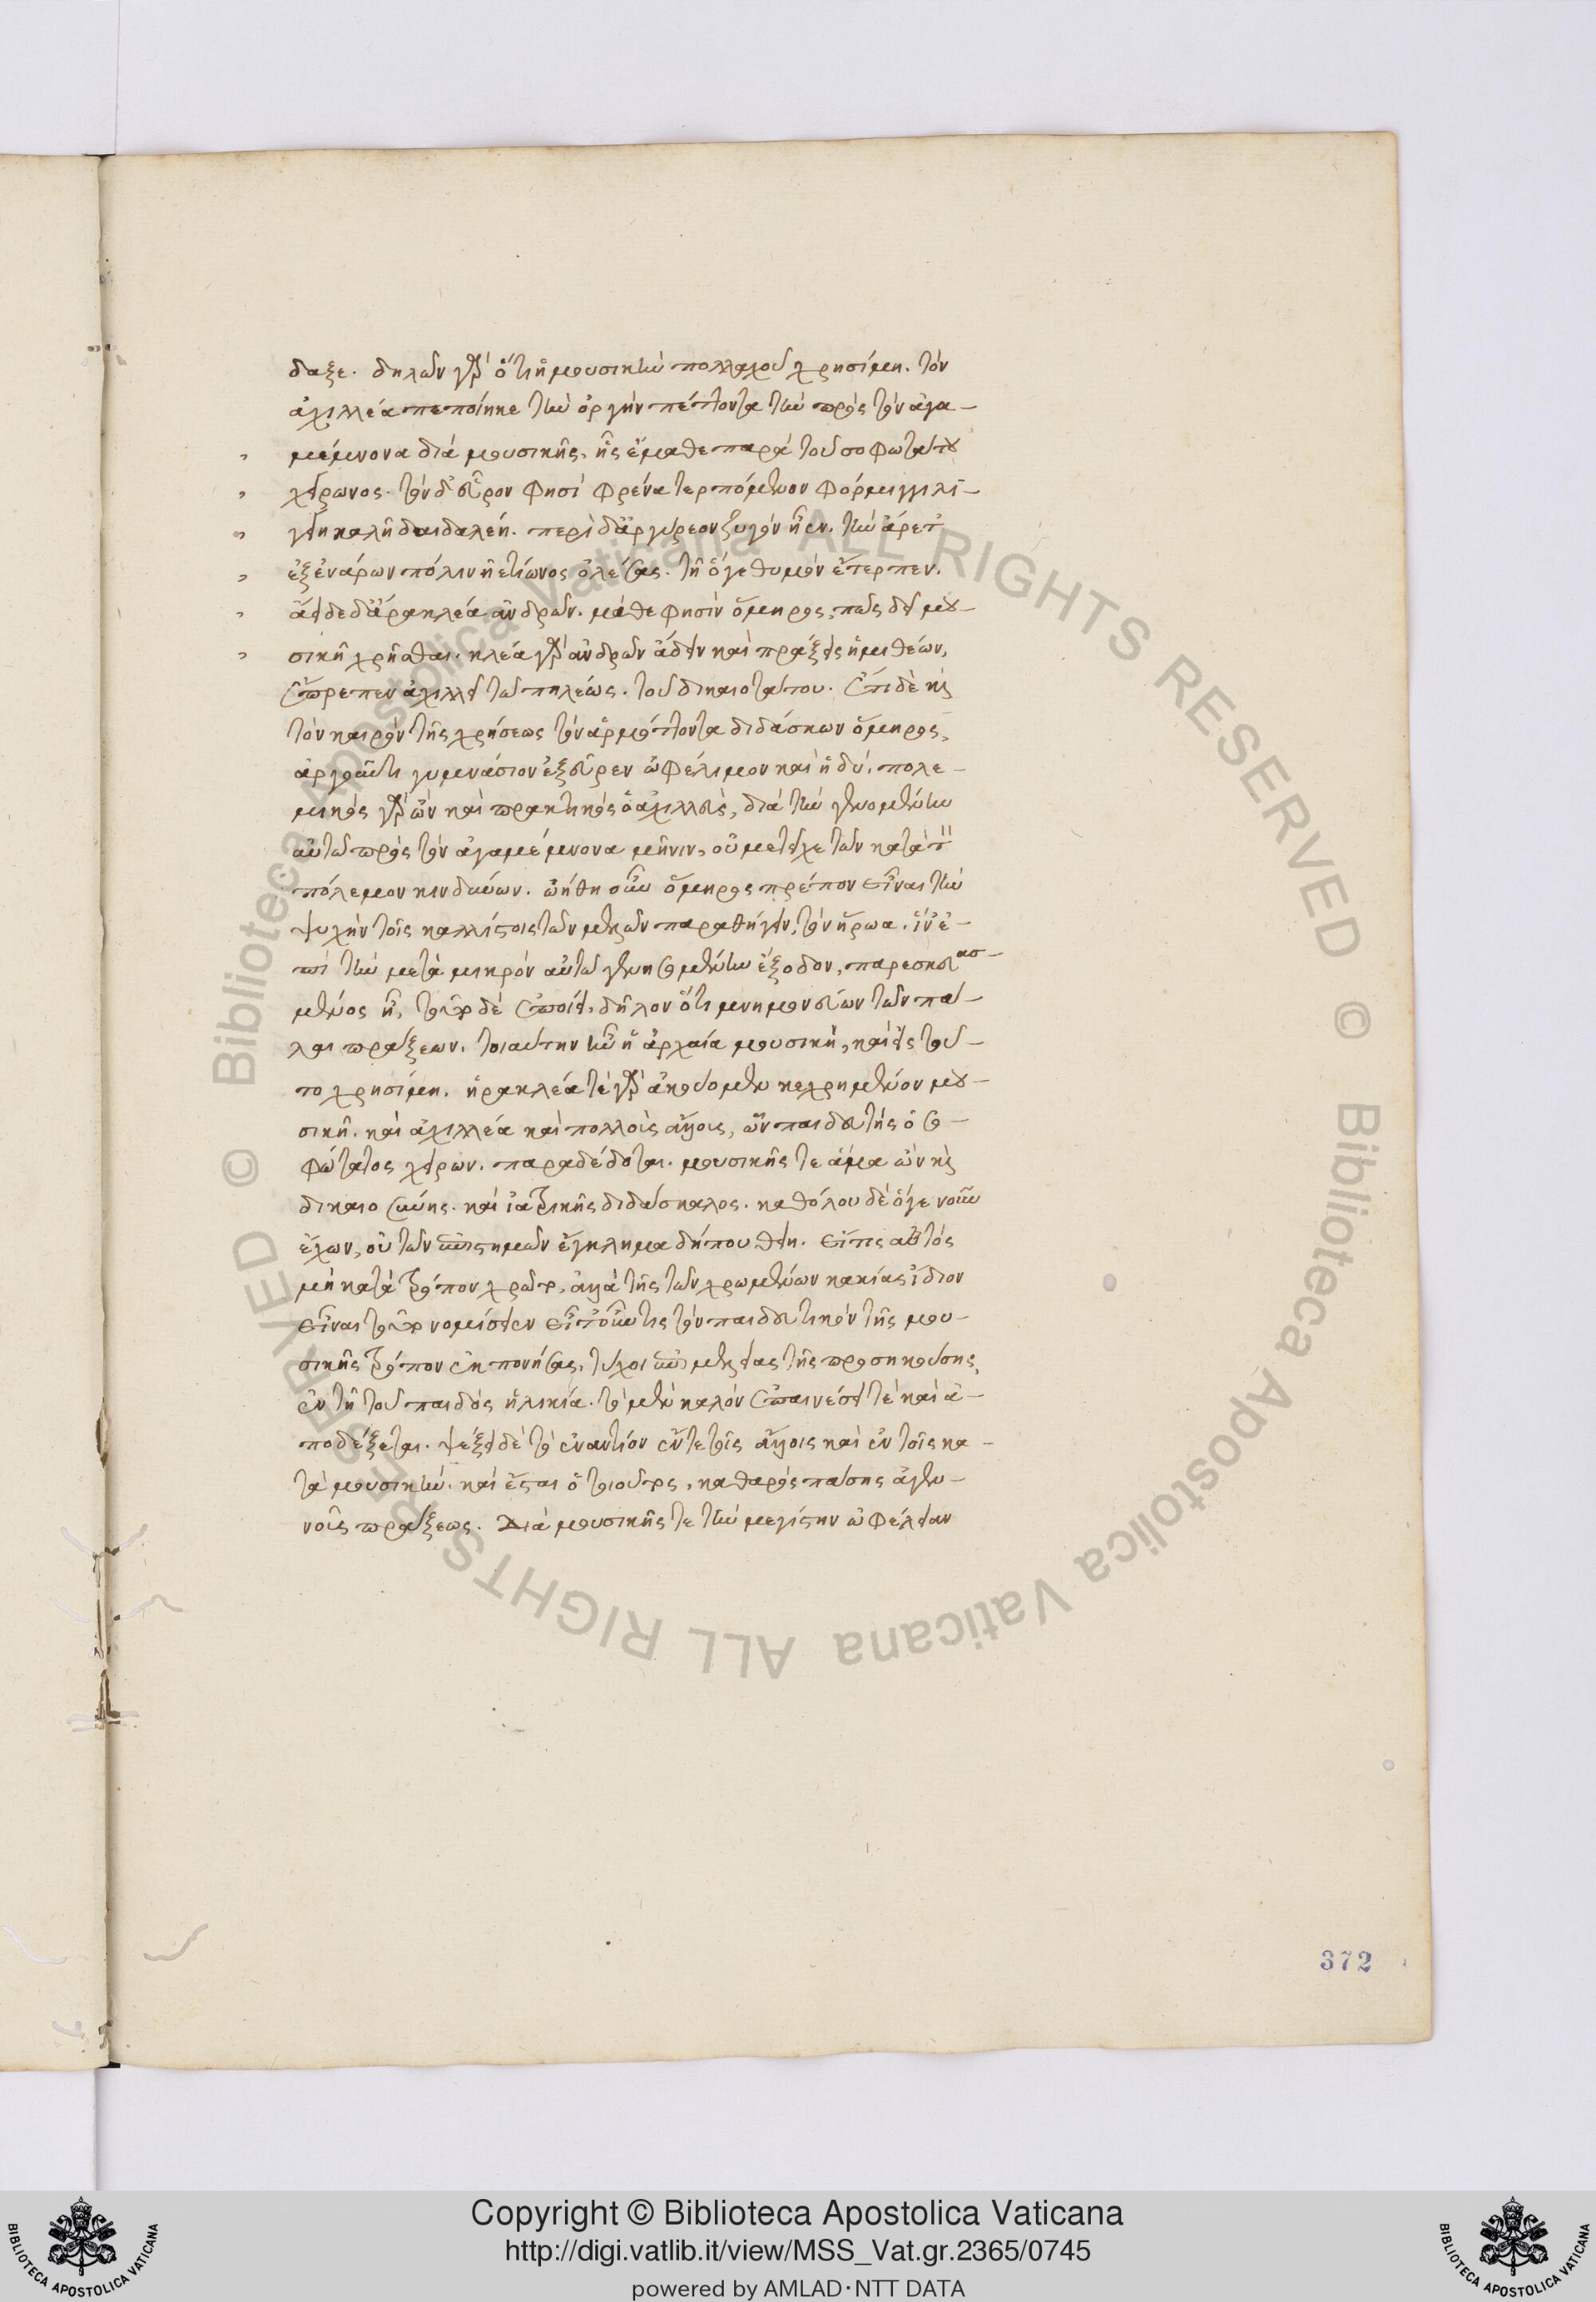 δαξε. δηλῶν γὰρ ὅτι ἡ μουσικὴ πολλαχοῦ χρησίμη. τὸν
ἀχιλλέα πεποίηκε τὴν ὀργὴν πέττοντα τὴν πρὸς τὸν ἀγα-
μέμνονα διὰ μουσικῆς, ἧς ἔμαθε παρὰ τοῦ σοφωτάτου
χείρωνος. τὸν δ' εὗρον φησὶ φρένα τερπόμενον φόρμιγγι λι-
γείη καλῇ δαιδαλέη. περὶ δ' ἀργύρεον ζυγὸν ἦεν. τὴν ἄρετ'
ἐξ ἐνάρων πόλιν ἠετίωνος ὀλέσας. τῇ ὅγε θυμὸν ἔτερπεν.
ἄειδε δ' ἄρα κλέα ἀνδρῶν. μάθε φησὶν ὅμηρος, πῶς δεῖ μου-
σικῇ χρῆσθαι. κλέα γὰρ ἀνδρῶν ἄδειν καὶ πράξεις ἡμιθέων,
ἔπρεπεν ἀχιλλεῖ τῶ πηλέως. τοῦ δικαιοτάτου. ἔτι δὲ καὶ
τὸν καιρὸν τῆς χρήσεως τὸν ἁρμόττοντα διδάσκων ὅμηρος,
ἀργοῦντι γυμνάσιον ἐξεῦρεν ὠφέλιμον καὶ ἡδύ. πολε-
μικὸς γὰρ ὢν καὶ πρακτικὸς ὁ ἀχιλλεὺς, διὰ τὴν γενομένην
αὐτῶ πρὸς τὸν ἀγαμέμνονα μῆνιν, οὐ μετεῖχε τῶν κατὰ τὸν
πόλεμον κινδύνων. ὠήθη οὖν ὅμηρος πρέπον εἶναι τὴν
ψυχὴν τοῖς καλλίστοις τῶν μελῶν παραθήγειν, τὸν ἥρωα. ἵν' ἐ-
πὶ τὴν μετὰ μικρὸν αὐτῶ γενησομένην ἔξοδον, παρεσκευασ-
μένος ᾖ, τοῦτο δὲ ἐποίει, δῆλον ὅτι μνημονεύων τῶν πά-
λαι πράξεων. τοιαύτην ἦν ἡ ἀρχαία μουσικὴ, καὶ εἰς τοῦ-
το χρησίμη. ἡρακλέα τὲ γὰρ ἀκούομεν κεχρημένον μου-
σικῇ. καὶ ἀχιλλέα καὶ πολλοὺς ἄλλους, ὧν παιδευτὴς ὁ σο-
φώτατος χείρων. παραδέδοται. μουσικῆς τε ἅμα ὢν καὶ
δικαιοσύνης. καὶ ἰατρικῆς διδάσκαλος. καθόλου δὲ ὅγε νοῦν
ἔχων, οὐ τῶν ἐπιστημῶν ἔγκλημα δήπου θείη. εἴ τις αὐτοῖς
μὴ κατὰ τρόπον χρῶτο, ἀλλὰ τῆς τῶν χρωμένων κακίας ἴδιον
εἶναι τοῦτο νομίσειεν εἴτ' οὖν τις τὸν παιδευτικὸν τῆς μου-
σικῆς τρόπον ἐκπονήσας, τύχοι ἐπιμελείας τῆς προσηκούσης
ἐν τῇ τοῦ παιδὸς ἡλικία. τὸ μὲν καλὸν ἐπαινέσει τὲ καὶ ἀ-
ποδέξεται. ψέξει δὲ τὸ ἐναντίον ἔν τε τοῖς ἄλλοις καὶ ἐν τοῖς κα-
τὰ μουσικὴν. καὶ ἔσται ὁ τοιοῦτος, καθαρὸς πάσης ἀγεν-
νοῦς πράξεως. Διὰ μουσικῆς τε τὴν μεγίστην ὠφέλειαν
372
Copyright © Biblioteca Apostolica Vaticana
http://digi.vatlib.it/view/MSS_Vat.gr.2365/0745
powered by AMLAD·NTT DATA